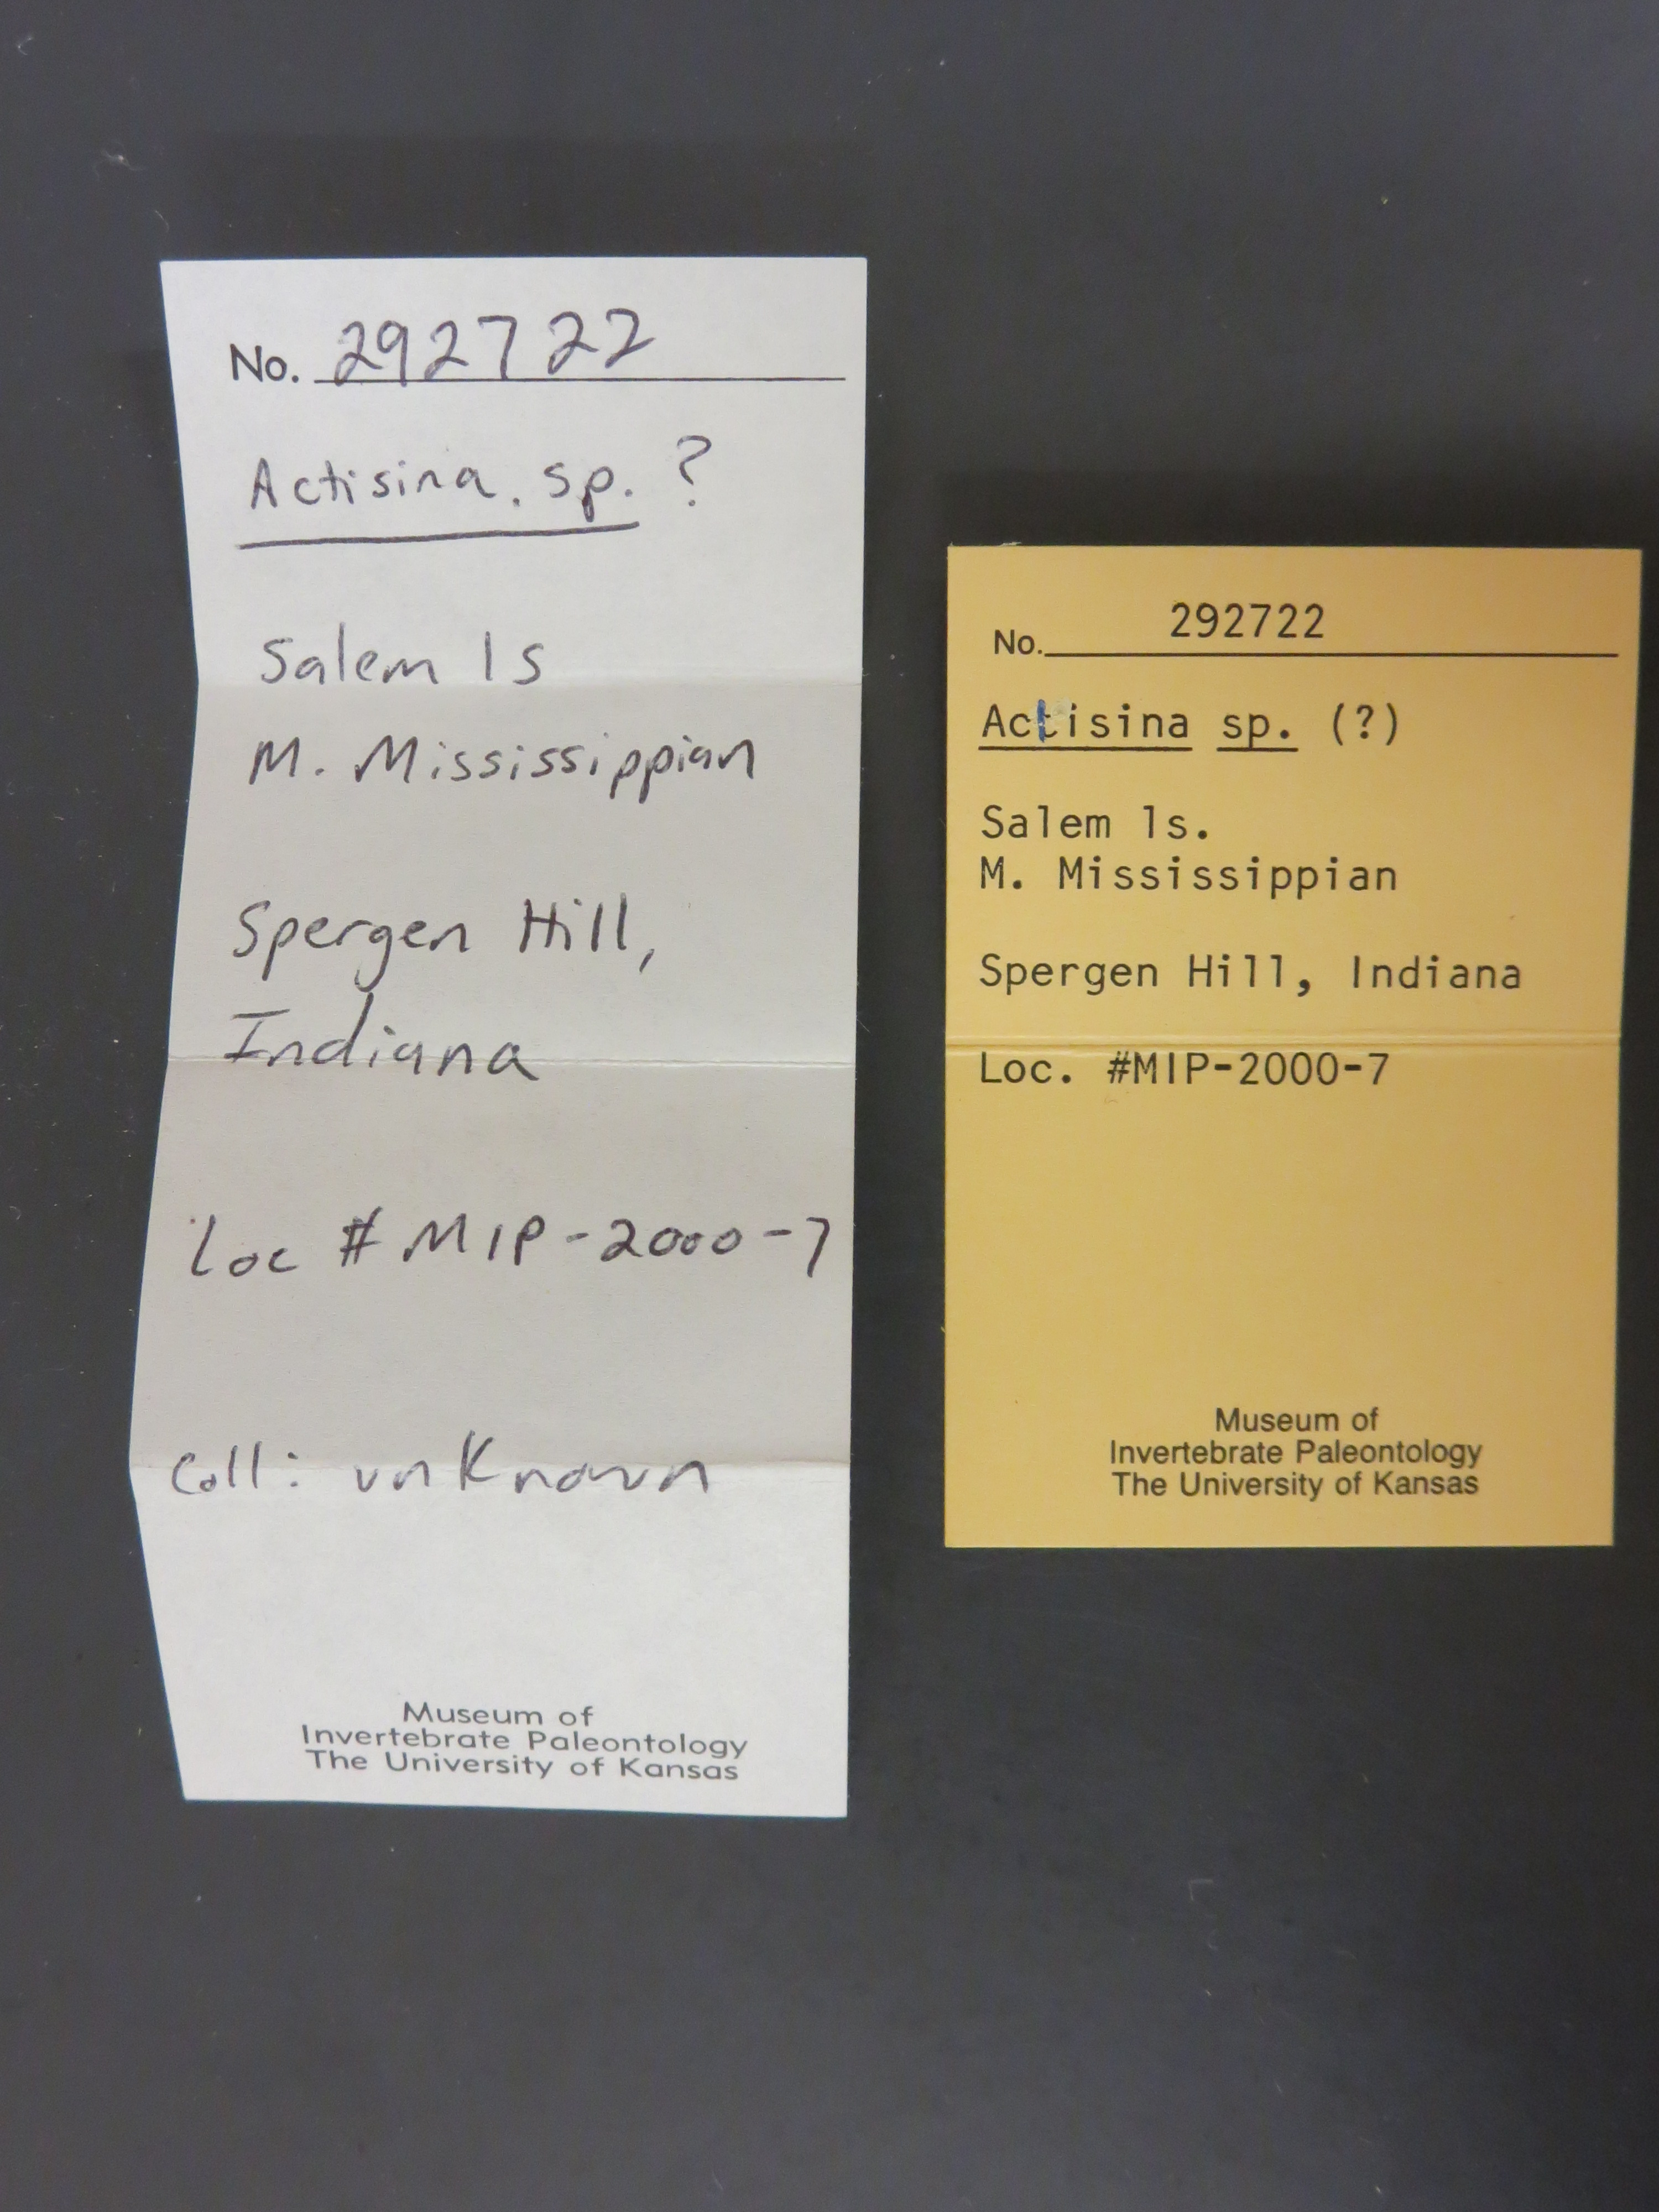 No. 292722
Actisina. sp. ?
Salem ls
M. Mississippian
Spergen Hill,
Indiana
Loc # MIP-2000-7
Coll: unKnown
Museum of
Invertebrate Paleontology
The University of Kansas
No. 292722
Actisina sp. (?)
Salem ls.
M. Mississippian
Spergen Hill, Indiana
Loc. #MIP-2000-7
Museum of
Invertebrate Paleontology
The University of Kansas